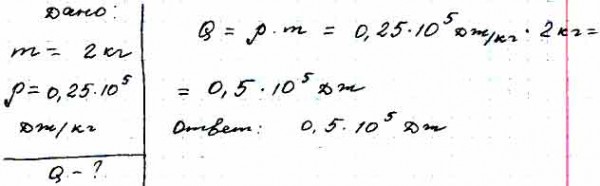 Дано:
m = 2 кг
ρ = 0,25·10⁵
Дж/кг
Q - ?
Q = ρ·m = 0,25·10⁵ Дж/кг · 2 кг =
= 0,5·10⁵ Дж
Ответ: 0,5·10⁵ Дж